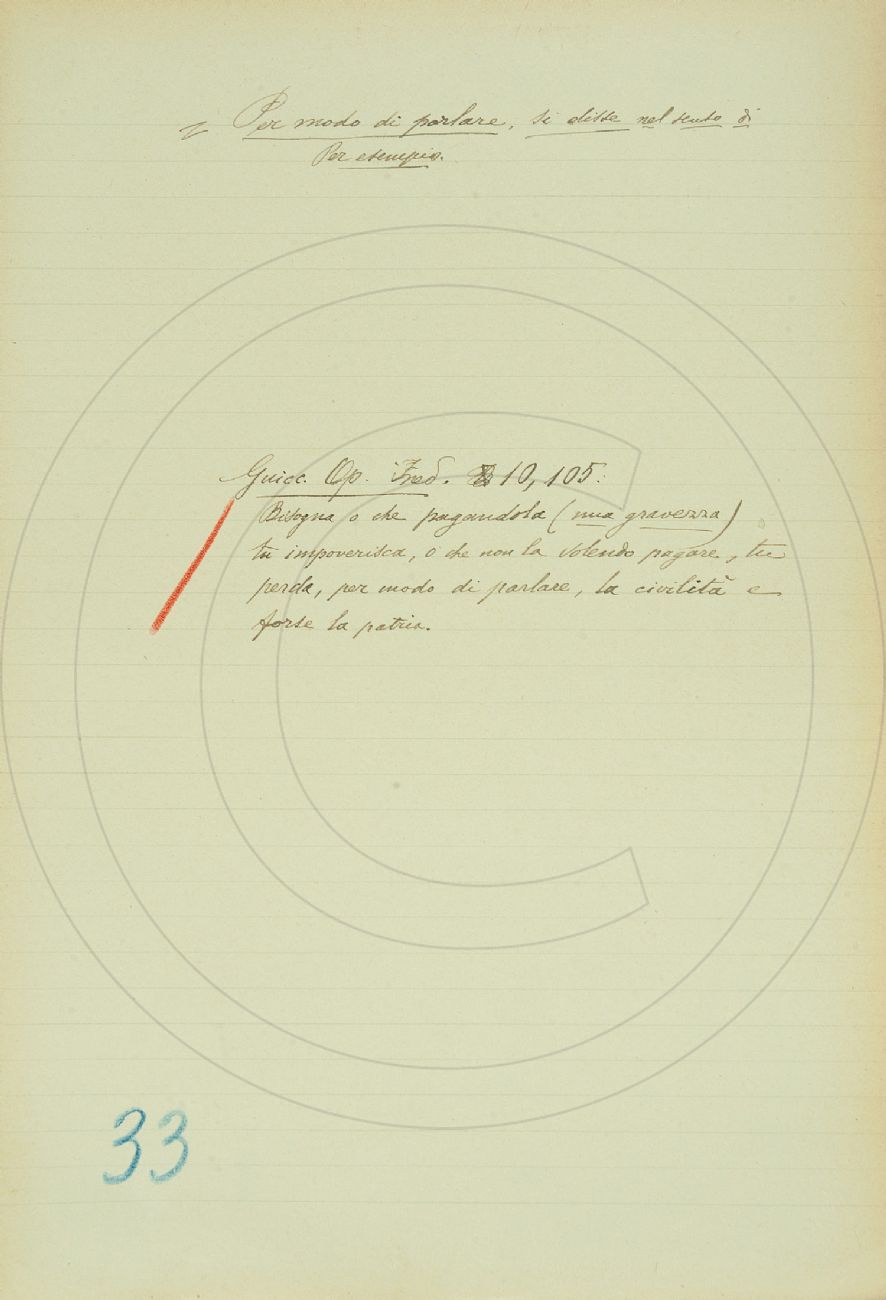 = Per modo di parlare, si disse nel senso di
Per esempio.
Guicc. Op. Ined. 10, 105:
Bisogna o che pagandola (una gravezza)
tu impoverisca, o che non la volendo pagare, tu
perda, per modo di parlare, la civiltà e
forse la patria.
33